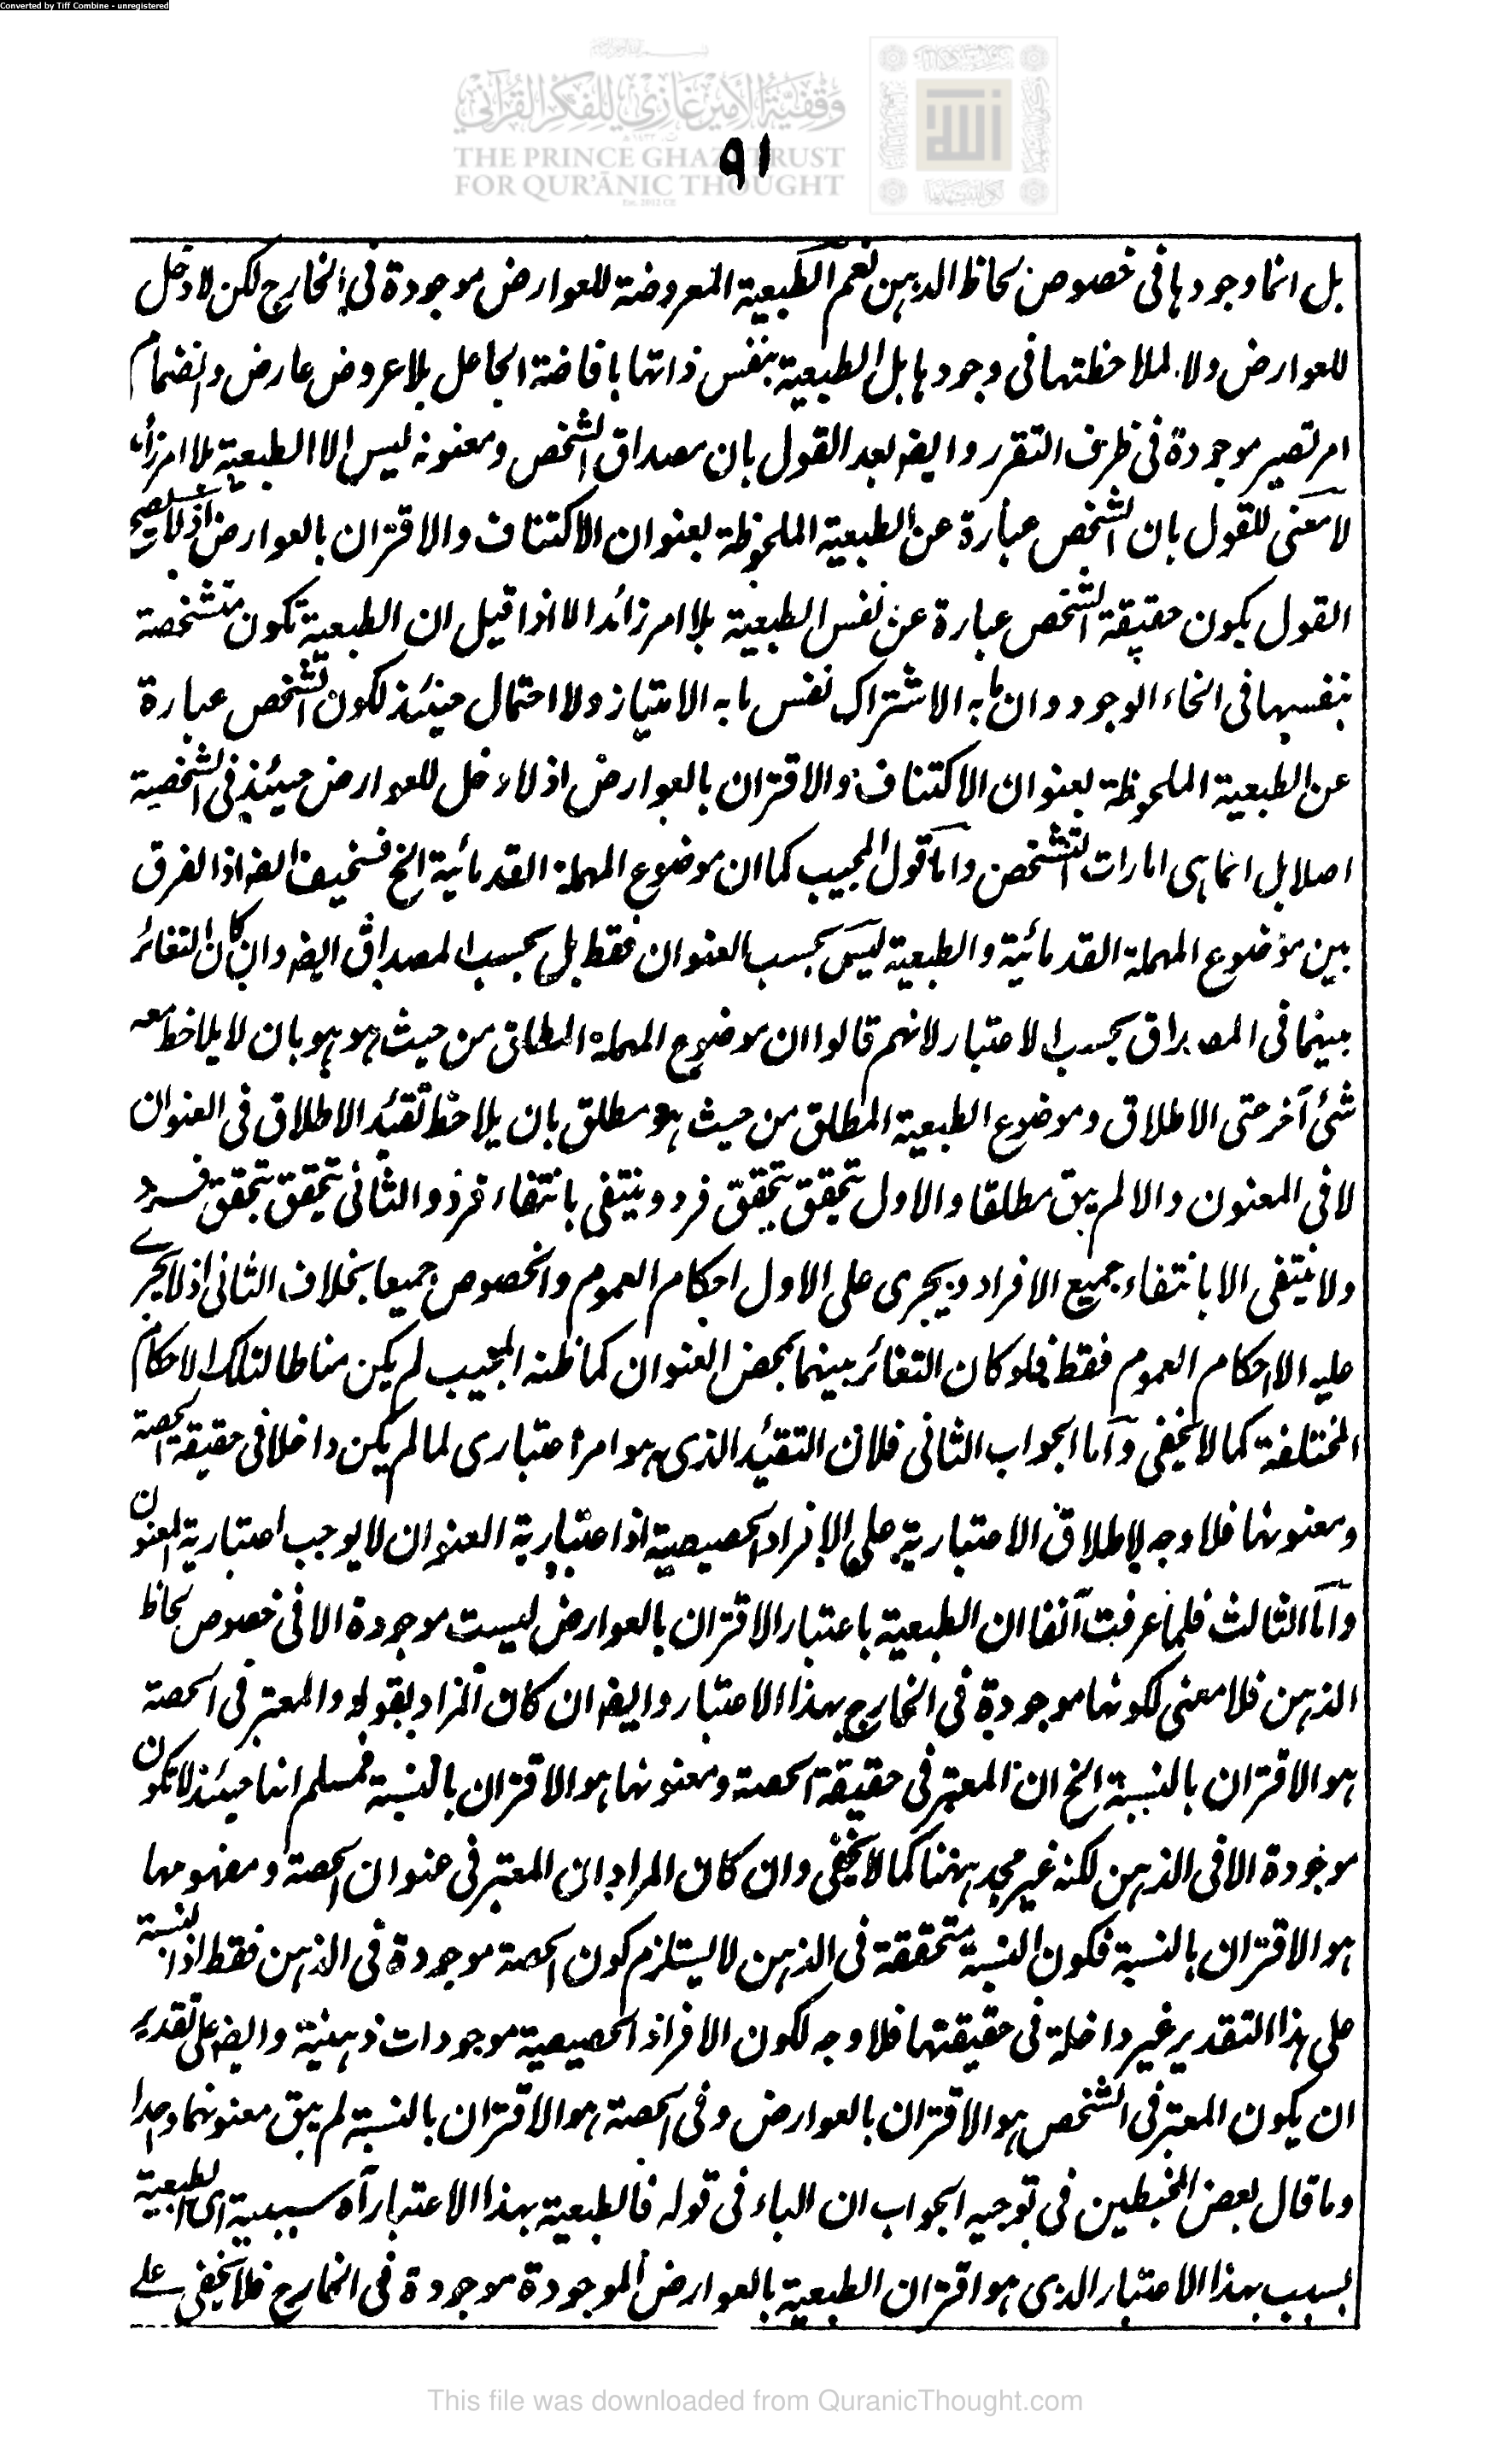 Converted by Tiff Combine - unregistered
وقفية الأمير غازي للفكر القرآني
THE PRINCE GHAZI TRUST
FOR QUR'ĀNIC THOUGHT
٩١
بل انما وجودها في خصوص لحاظ الذهن نعم الطبعية المعروضة للعوارض موجودة في الخارج لكن لا دخل
للعوارض ولا لملاحظتها في وجودها بل الطبعية بنفس ذاتها بافاضة الجاعل بلا عروض عارض وانضمام
امر تصير موجودة في ظرف التقرر وايضا بعد القول بان مصداق الشخص ومعنونه ليس الا الطبعية بلا امر زائد
لا معنى للقول بان الشخص عبارة عن الطبعية الملحوظة بعنوان الاكتناف والاقتران بالعوارض اذ لا يصح
القول بكون حقيقة الشخص عبارة عن نفس الطبعية بلا امر زائد الا اذا قيل ان الطبعية تكون متشخصة
بنفسها في انحاء الوجود وان ما به الاشتراك نفس ما به الامتياز ولا احتمال حينئذ لكون الشخص عبارة
عن الطبعية الملحوظة بعنوان الاكتناف والاقتران بالعوارض اذ لا دخل للعوارض حينئذ في الشخصية
اصلا بل انما هى امارات التشخص واما قول المجيب كما ان موضوع المهملة القدمائية الخ فسخيف ايضا اذ الفرق
بين موضوع المهملة القدمائية والطبعية ليس بحسب العنوان فقط بل بحسب المصداق ايضا وان كان التغائر
بينهما في المصداق بحسب الاعتبار لانهم قالوا ان موضوع المهملة المطلق من حيث هو هو بان لا يلاحظ معه
شئ آخر حتى الاطلاق وموضوع الطبعية المطلق من حيث هو مطلق بان يلاحظ تقيد الاطلاق في العنوان
لا في المعنون والا لم يبق مطلقا والاول تحقق بتحقق فرد وينتفي بانتفاء فرد والثاني تحقق بتحقق فرد
ولا ينتفي الا بانتفاء جميع الافراد ويجرى على الاول احكام العموم والخصوص جميعا بخلاف الثاني اذ لا يجرى
عليه الا احكام العموم فقط فلو كان التغائر بينهما بمحض العنوان كما ظنه المجيب لم يكن مناطا لتلك الاحكام
المختلفة كما لا يخفى واما الجواب الثاني فلان التقيد الذى هو امر اعتبارى لما لم يكن داخلا في حقيقة الحصة
ومعنونها فلا وجه لاطلاق الاعتبارية على الافراد الحصيصية اذ اعتبارية العنوان لا يوجب اعتبارية المعنون
واما الثالث فلما عرفت آنفا ان الطبعية باعتبار الاقتران بالعوارض ليست موجودة الا في خصوص لحاظ
الذهن فلا معنى لكونها موجودة في الخارج بهذا الاعتبار وايضا ان كان المراد بقوله والمعتبر في الحصة
هو الاقتران بالنسبة الخ ان المعتبر في حقيقة الحصة ومعنونها هو الاقتران بالنسبة فمسلم انها حينئذ لا تكون
موجودة الا في الذهن لكنه غير مجد ههنا كما لا يخفى وان كان المراد ان المعتبر في عنوان الحصة ومفهومها
هو الاقتران بالنسبة فكون النسبة متحققة في الذهن لا يستلزم كون الحصة موجودة في الذهن فقط اذ النسبة
على هذا التقدير غير داخلة في حقيقتها فلا وجه لكون الافراد الحصيصية موجودات ذهنية وايضا على تقدير
ان يكون المعتبر في الشخص هو الاقتران بالعوارض وفي الحصة هو الاقتران بالنسبة لم يبق معنونهما واحدا
وما قال بعض المخبطين في توجيه الجواب ان الباء في قوله فالطبعية بهذا الاعتبار آه سببية اى الطبعية
بسبب هذا الاعتبار الذى هو اقتران الطبعية بالعوارض الموجودة موجودة في الخارج فلا يخفى على
This file was downloaded from QuranicThought.com